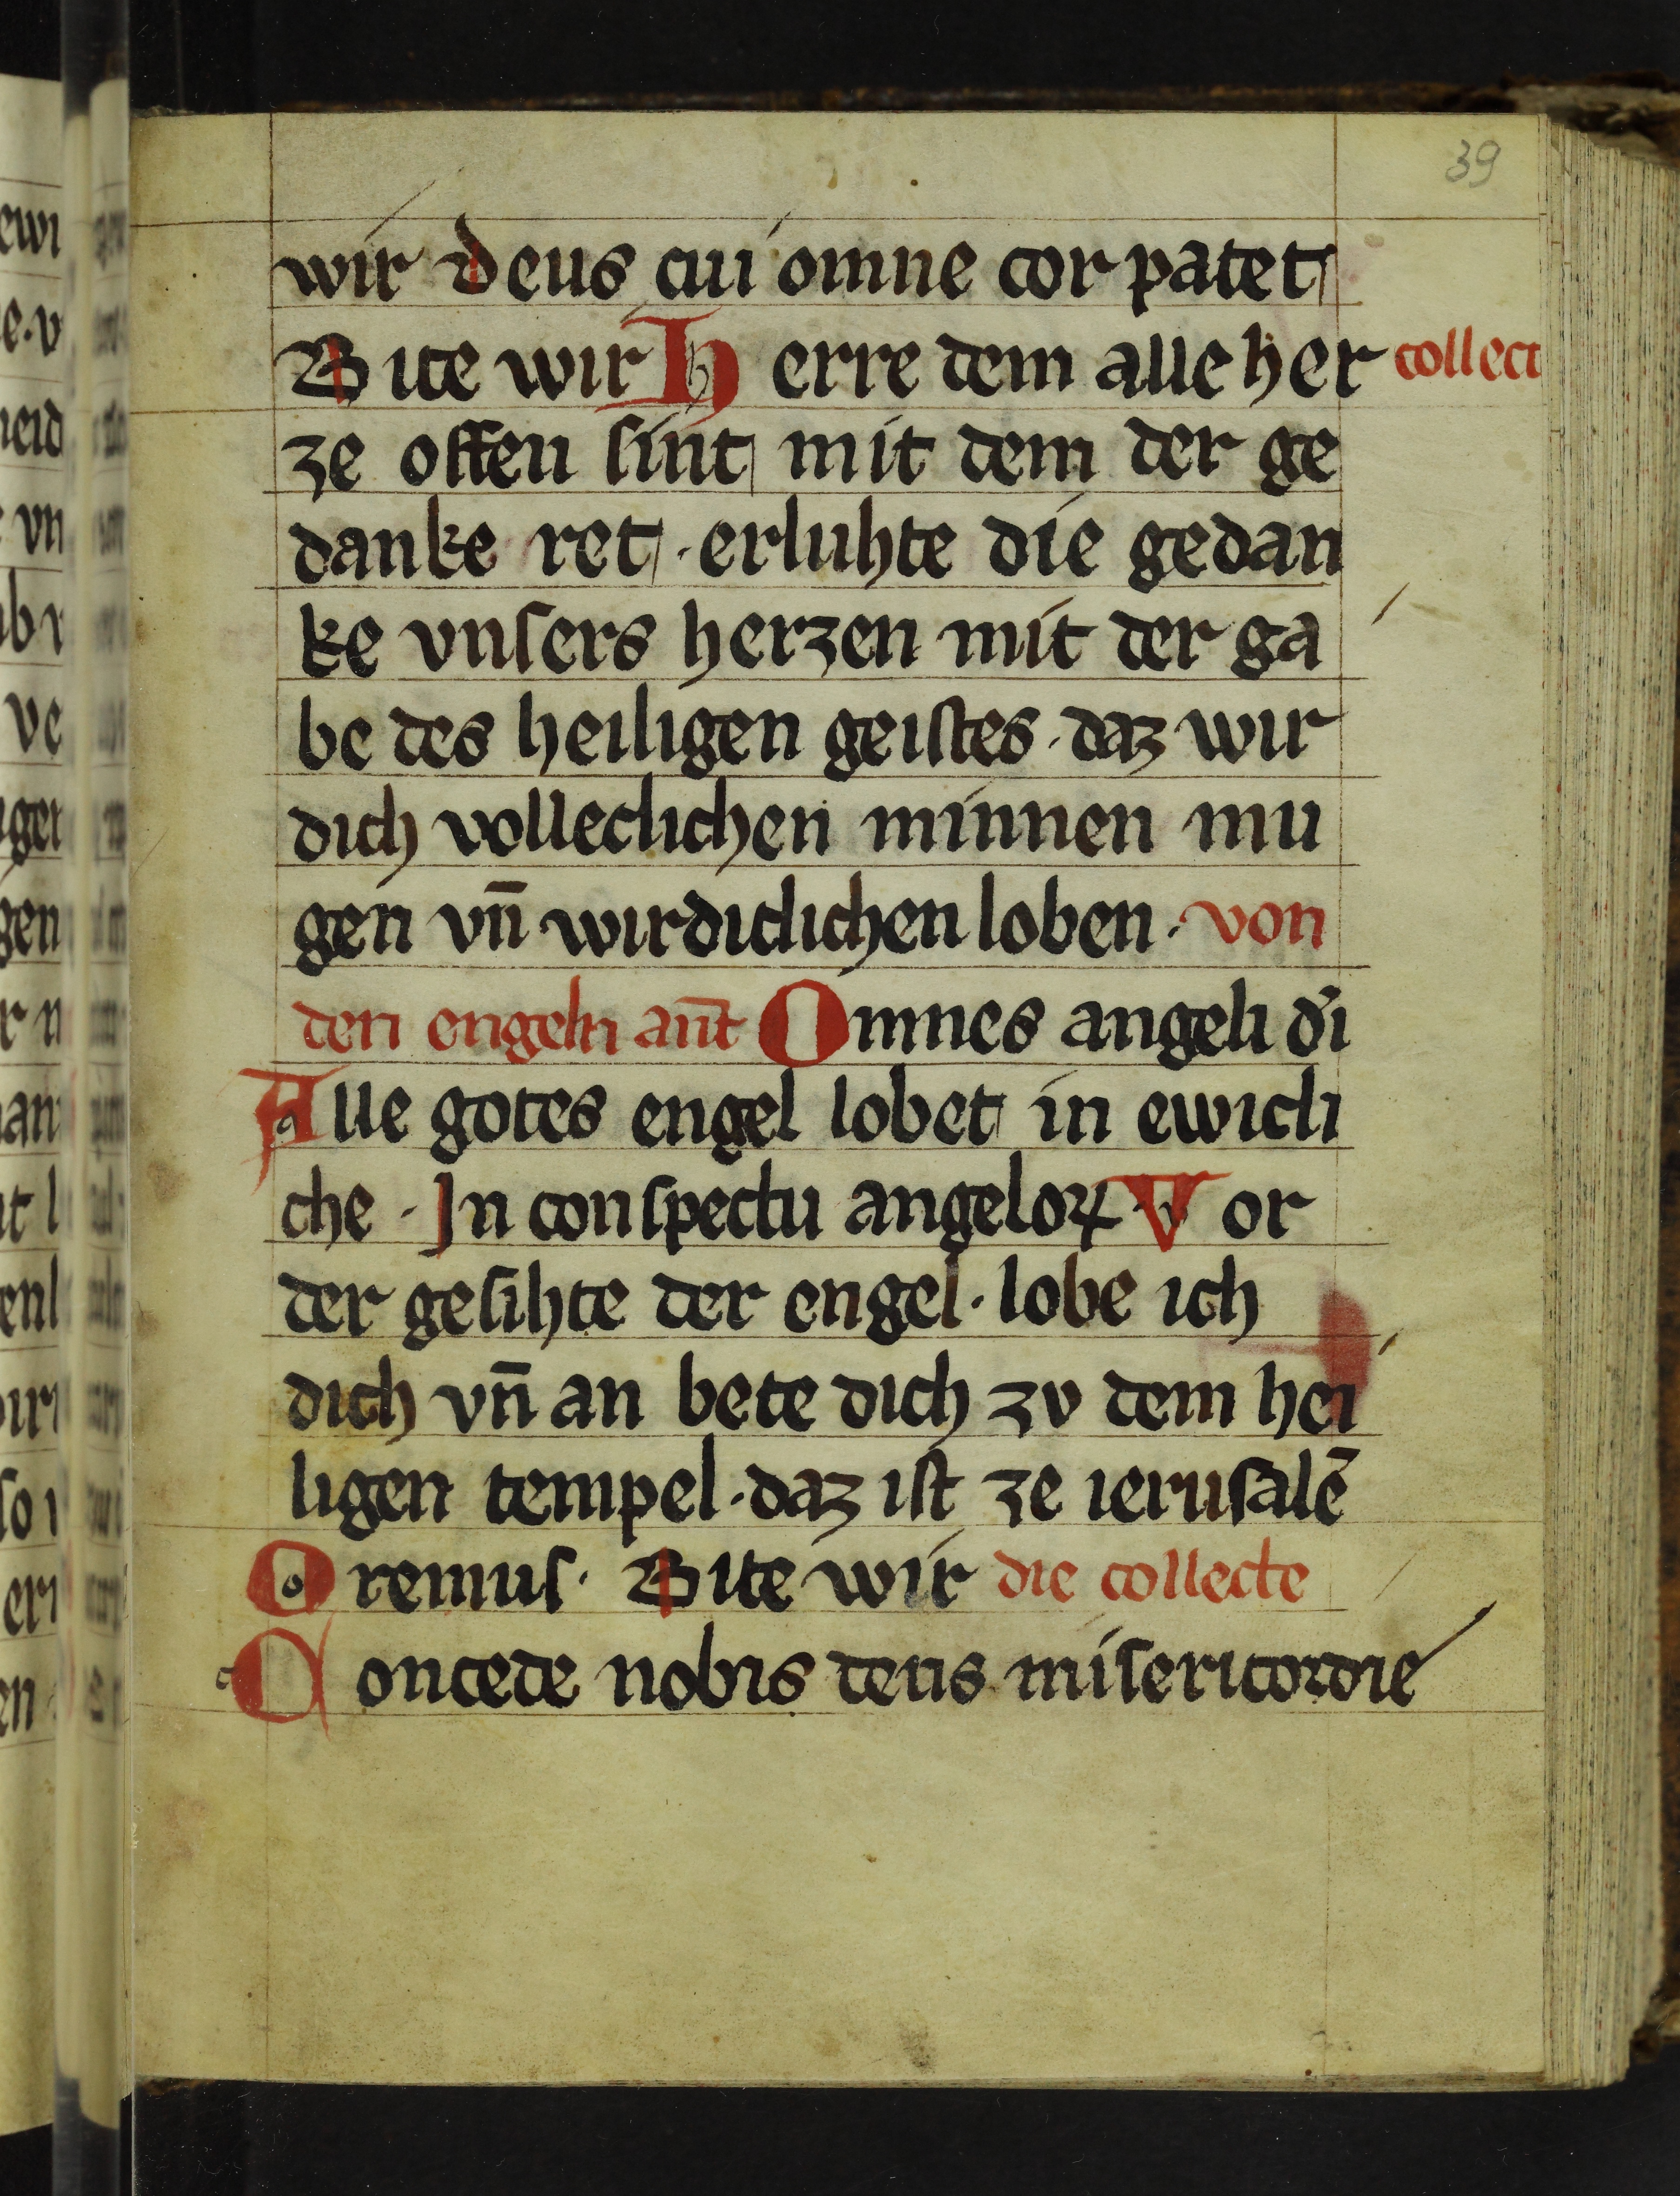 39
wir deus cui omne cor patet
Bite wir Herre dem alle her collect
ze offen sint mit dem der ge
danke ret · erluhte die gedan
ke vnsers herzen mit der ga
be des heiligen geistes · daz wir
dich volleclichen minnen mu
gen vn̄ wirdiclichen loben · von
den engeln an̄t Omnes angeli dī
Alle gotes engel lobet in ewicli
che · In conspectu angeloꝝ Vor
der gesihte der engel · lobe ich
dich vn̄ an bete dich zv dem hei
ligen tempel · daz ist ze ierusalē
Oremus · Bite wir die collecte
Concede nobis deus misericordie